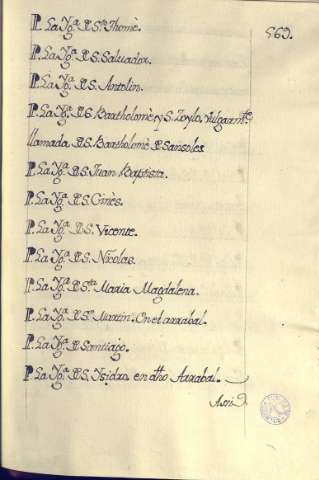 569.
P. La Ygª. de Sto. Thomè.
P. La Ygª. de S. Salvador.
P. La Ygª. de S. Antolin.
P. La Ygª. de S. Bartholomè y S. Zoylo, vulgarmte.
llamada de S. Bartholomè de Sansoles
P. La Ygª. de S. Juan Baptista.
P. La Ygª. de S. Ginès.
P. La Ygª. de S. Vicente.
P. La Ygª. de S. Nicolas.
P. La Ygª. de Sta. Maria Magdalena.
P. La Ygª. de Sn. Martin. En el arrabal.
P. La Ygª. de Santiago.
P. La Ygª. de S. Isidro, en dho Arrabal.